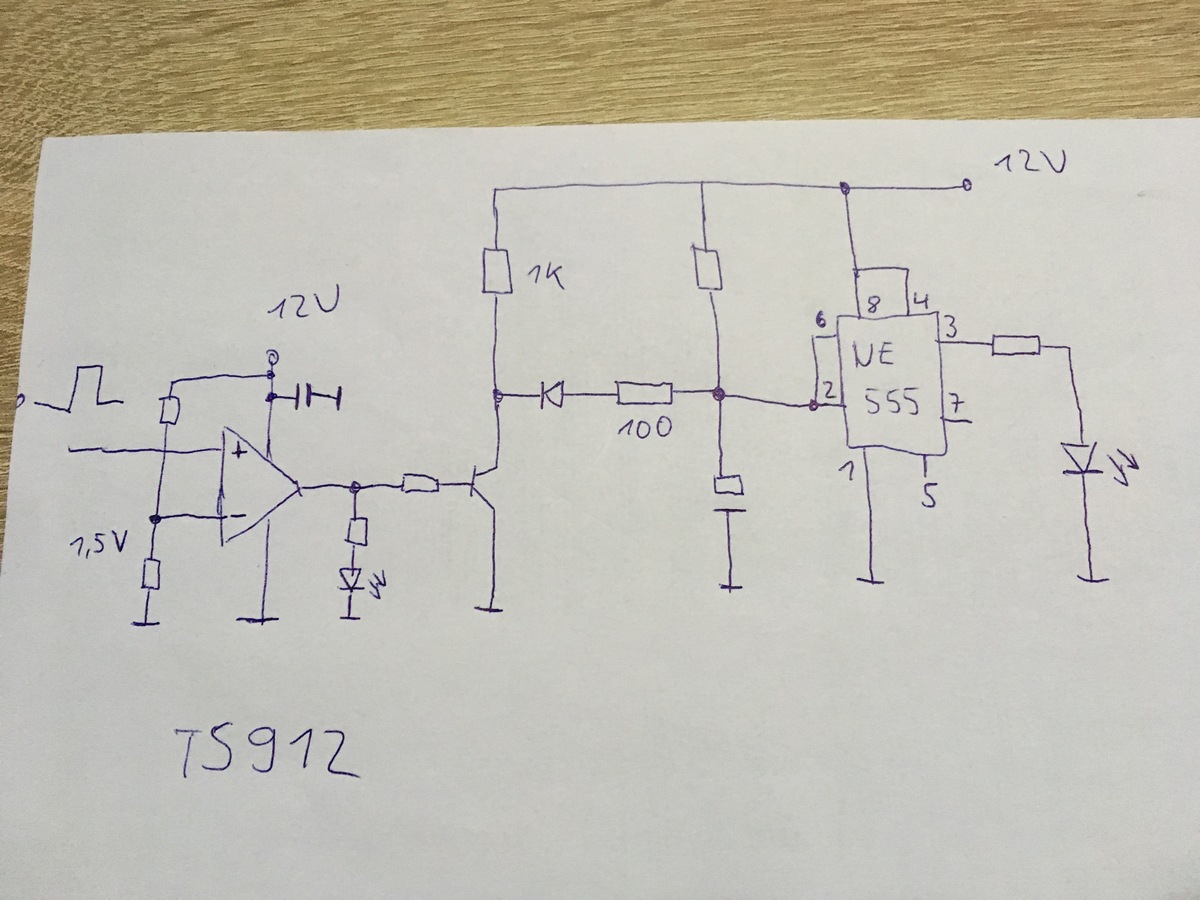 12V
12V
1K
8 4
6
3
NE
2
555
7
100
1
5
+
-
1,5V
TS912